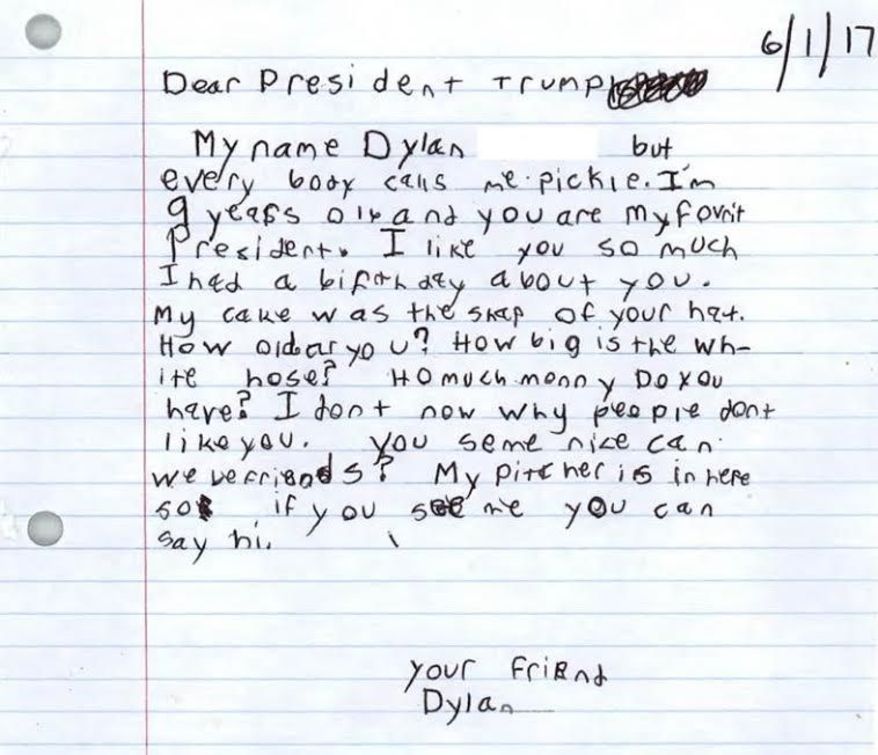 6/1/17
Dear President Trump
My name Dylan but
every body calls me pickle. I'm
9 years old and you are my fovrit
President. I like you so much
I had a birthday about you.
My cake was the shap of your hat.
How old ar you? How big is the wh-
ite hose? HO much monny Do you
have? I dont now why people dont
like you. You seme nice can
we be friends? My pitcher is in here
so if you see me you can
say hi.
your friend
Dylan